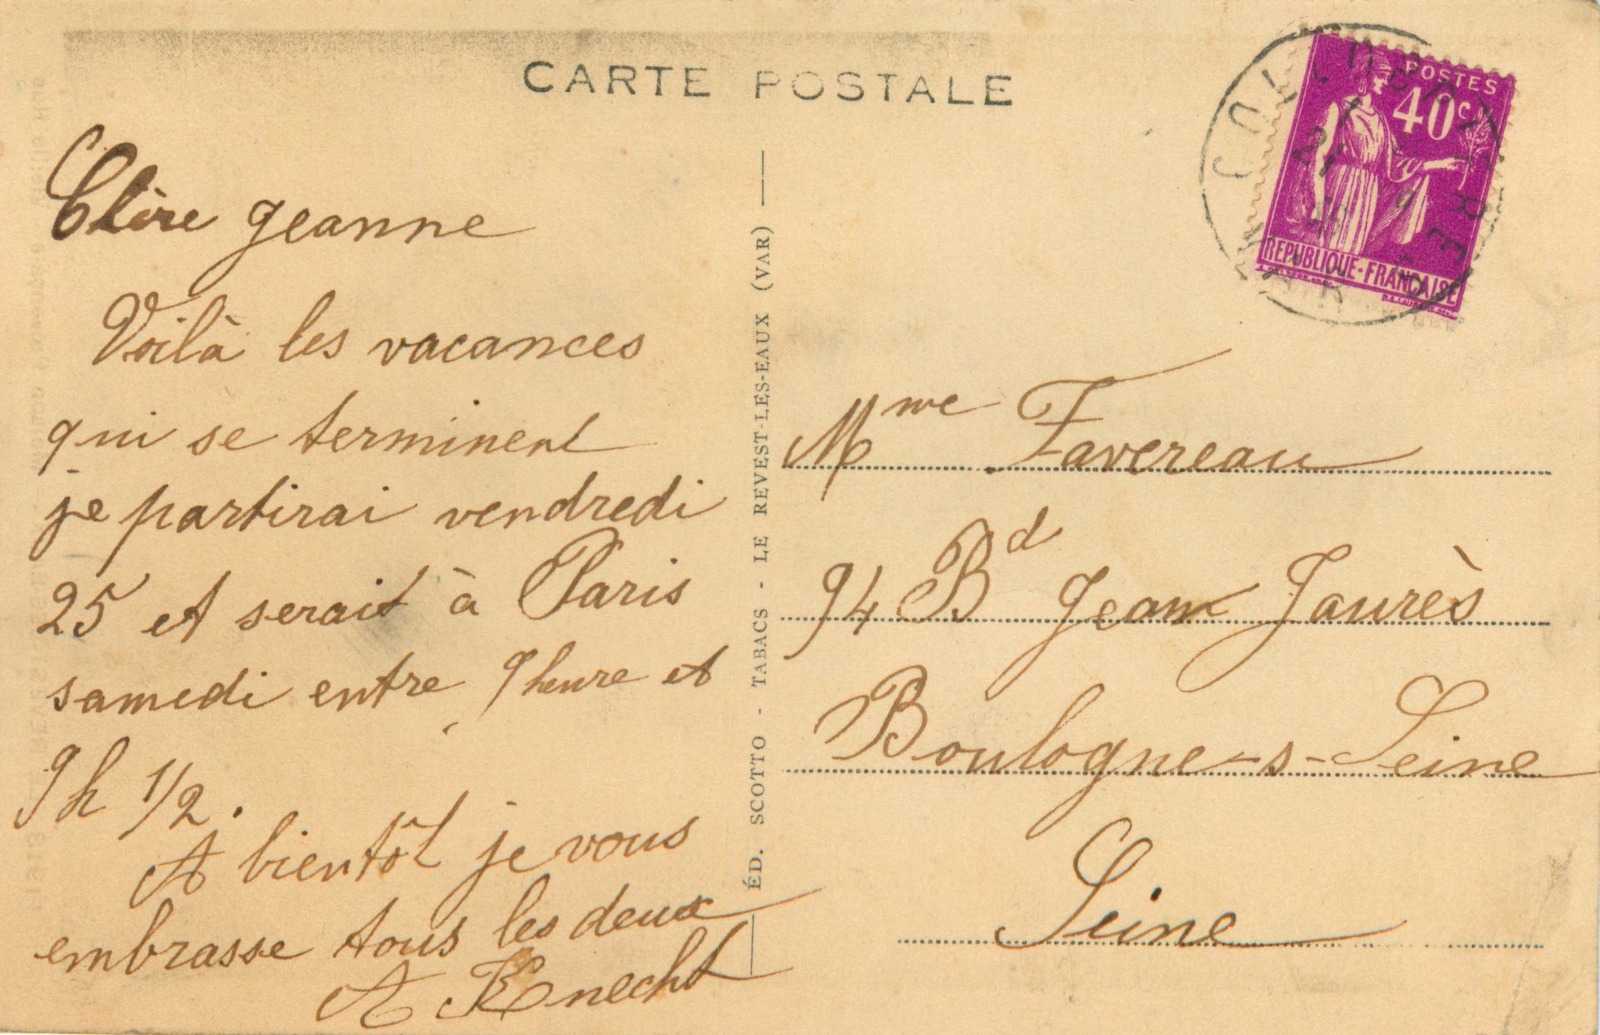 CARTE POSTALE
Chère Jeanne
Voilà les vacances
qui se terminent
je partirai vendredi
25 et serait à Paris
samedi entre 9 heure et
9 h 1/2.
A bientôt je vous
embrasse tous les deux
A Knecht
ÉD. SCOTTO - TABACS - LE REVEST-LES-EAUX (VAR)
POSTES
40c
REPUBLIQUE·FRANÇAISE
Mme Favereau
94 Bd Jean Jaurès
Boulogne-s-Seine
Seine